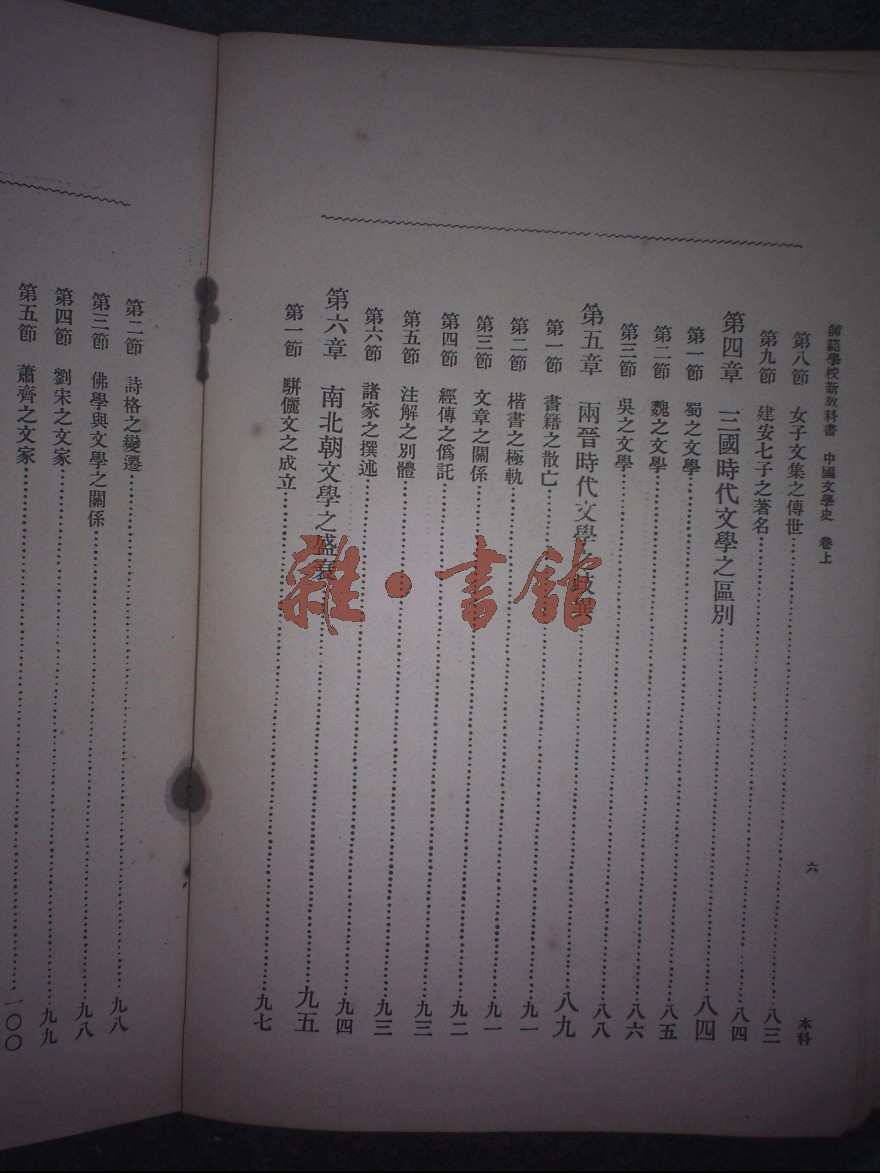 師範學校新教科書 中國文學史 卷上 六 本科
第八節 女子文集之傳世⋯⋯八三
第九節 建安七子之著名⋯⋯八四
第四章 三國時代文學之區別⋯⋯八四
第一節 蜀之文學⋯⋯八五
第二節 魏之文學⋯⋯八六
第三節 吳之文學⋯⋯八八
第五章 兩晉時代文學之⋯⋯八九
第一節 書籍之散亡⋯⋯九一
第二節 楷書之極軌⋯⋯九一
第三節 文章之關係⋯⋯九二
第四節 經傳之僞託⋯⋯九三
第五節 注解之別體⋯⋯九三
第六節 諸家之撰述⋯⋯九四
第六章 南北朝文學之盛衰⋯⋯九五
第一節 駢儷文之成立⋯⋯九七
第二節 詩格之變遷⋯⋯九八
第三節 佛學與文學之關係⋯⋯九八
第四節 劉宋之文家⋯⋯九九
第五節 蕭齊之文家⋯⋯一〇〇
雜·書館